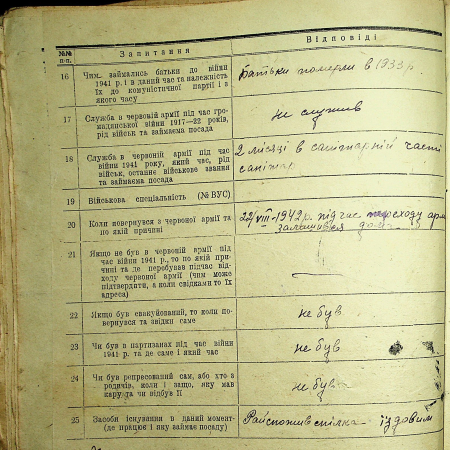 №№ п-п.
Запитання
Відповіді
16
Чим займались батьки до війни
1941 р. і в даний час та належність
їх до комуністичної партії і з
якого часу
Батьки померли в 1933 р.
17
Служба в червоній армії під час гро-
мадянської війни 1917—22 років,
рід військ та займаєма посада
не служив
18
Служба в червоній армії під час
війни 1941 року, який час, рід
військ, останнє військове звання
та займаєма посада
2 місяці в санітарній часті
санітар
19
Військова спеціяльність (№ ВУС)
20
Коли повернувся з червоної армії та
по якій причині
22/VIII-1942 р. під час переходу арм
залишився дома
21
Якщо не був в червоній армії під
час війни 1941 р., то по якій при-
чині та де перебував підчас від-
ходу червоної армії (чим може
підтвердити, а коли свідками то їх
адреса)
22
Якщо був евакуйований, то коли по-
вернувся та звідки саме
не був
23
Чи був в партизанах під час війни
1941 р. та де саме і який час
не був
24
Чи був репресований сам, або хто з
родичів, коли і защо, яку мав
кару та чи відбув її
не був
25
Засоби існування в даний момент-
(де працює і яку займає посаду)
Райспоживспілка їздовим